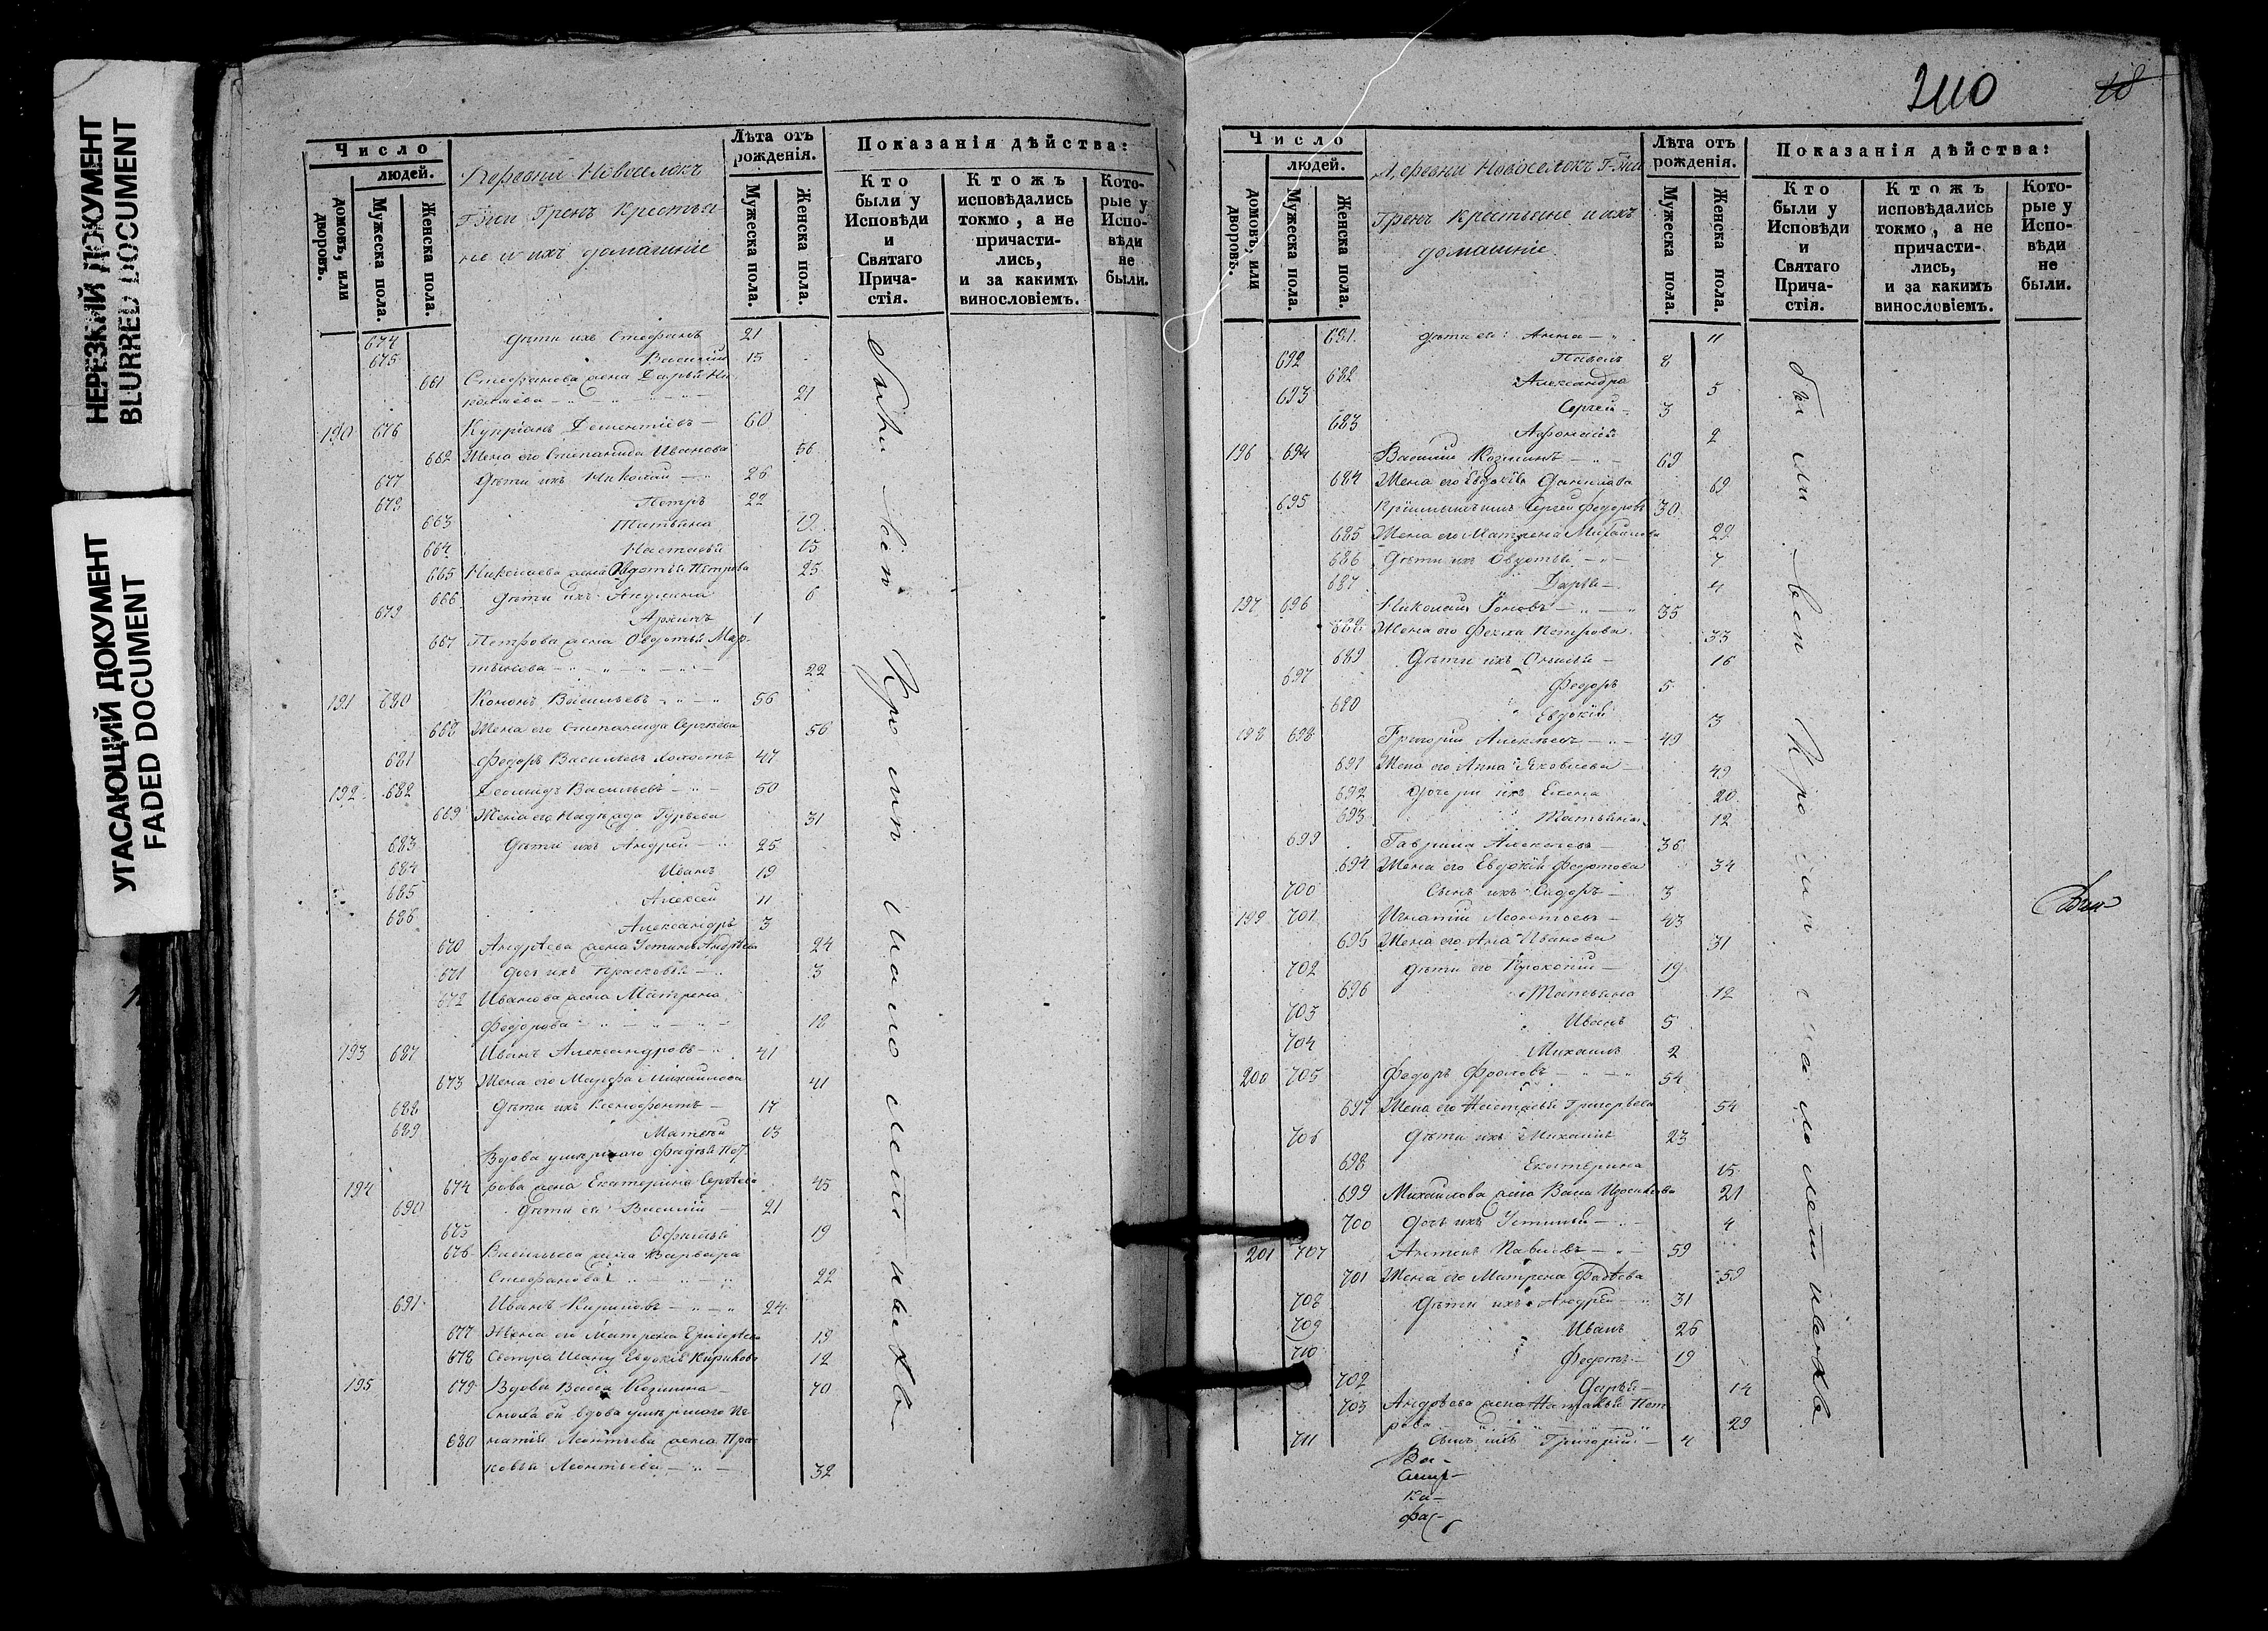 НЕРЕЗКИЙ ДОКУМЕНТ
BLURRED DOCUMENT
УГАСАЮЩИЙ ДОКУМЕНТ
FADED DOCUMENT
Число
людей.
домовъ, или дворовъ.
Мужеска пола.
Женска пола.
Деревни Новоселокъ
Г-жи Гренъ Крестья-
не и ихъ домашніе
Лѣта отъ рожденія.
Мужеска пола.
Женска пола.
Показанія дѣйства:
Кто были у Исповѣди и Святаго Прича- стія.
Ктожъ исповѣдались токмо, а не причасти- лись, и за какимъ винословіемъ.
Кото- рые у Испо- вѣди не были.
674 дѣти ихъ Стефанъ 21
675 Василій 15
661 Стефанова жена Дарья Ни-
колаева 21
190 676 Купріянъ Дементіевъ 60
662 Жена его Степанида Иванова 56
677 дѣти ихъ Николай 26
678 Петръ 22
663 Татьяна 19
664 Настасья 15
665 Николаева жена Авдотья Петрова 25
666 дѣти ихъ Акулина 6
679 Архипъ 1
667 Петрова жена Овдотья Мар-
тынова 22
191 680 Кононъ Васильевъ 56
668 Жена его Степанида Сергѣева 56
681 Федоръ Васильевъ холостъ 47
192 682 Васильевъ 50
669 Жена его Надежда Гурьева 31
683 дѣти ихъ Андрей 25
684 Иванъ 19
685 Алексей 11
686 Александръ 3
670 Андрѣева жена Устинья Андрѣева 24
671 дочь ихъ Прасковья 3
672 Иванова жена Матрена
Федорова 18
193 687 Иванъ Александровъ 41
673 Жена его Марфа Михайлова 41
688 дѣти ихъ Ксенофонтъ 17
689 Матвей 13
Вдова умершаго Фадѣя Пет-
194 674 рова жена Екатерина Сергѣева 45
690 дѣти ея Василій 21
675 Офимья 19
676 Васильева жена Варвара
Стефанова 22
691 Иванъ Кириловъ 24
677 Жена его Матрена Григорьева 19
678 Сестра Ивану Евдокія Кирилова 12
195 679 Вдова Васса Козмина 70
Сноха ей вдова умершаго Иг-
680 натія Леонтьева жена Пра-
ковья Леонтьева 32
были
вси
кромѣ
малолетниковъ
240
18
Число
людей.
домовъ, или дворовъ.
Мужеска пола.
Женска пола.
Деревни Новоселокъ Г-жи
Гренъ крестьяне и ихъ
домашніе
Лѣта отъ рожденія.
Мужеска пола.
Женска пола.
Показанія дѣйства:
Кто были у Исповѣди и Святаго Прича- стія.
Ктожъ исповѣдались токмо, а не причасти- лись, и за какимъ винословіемъ.
Кото- рые у Испо- вѣди не были.
681 дѣти ей: Анна 11
692 Павелъ 8
682 Александра 5
693 Сергей 3
683 2
196 694 Василій Козминъ 69
684 Жена его Евдокія Данилова 69
695 Сергей Федоровъ 30
685 Жена его Матрена Михайлова 29
686 дѣти ихъ Овдотья 7
687 Дарья 4
197 696 Николай 35
688 Жена его Фекла Петрова 33
689 дѣти ихъ 16
697 Федоръ 5
680 Евдокія 3
198 698 Григорій Алексѣевъ 49
691 Жена его Анна Яковлева 49
692 дочери ихъ Елена 20
693 Татьяна 12
699 Гаврила Алексѣевъ 36
694 Жена его Евдокія Федотова 34
700 Сынъ ихъ Сидоръ 3
199 701 Игнатій Леонтьевъ 43
695 Жена его Анна Иванова 31
702 дѣти его Прокопій 19
696 Татьяна 12
703 Иванъ 5
704 Михаилъ 2
200 705 Федоръ Фроловъ 54
697 Жена его Настасья Григорьева 54
706 дѣти ихъ Михаилъ 23
698 Екатерина 15
699 Михайлова жена 21
700 дочь ихъ Устинья 4
201 707 Антонъ Павловъ 59
701 Жена его Матрена Фадѣева 59
708 дѣти ихъ Андрей 31
709 Иванъ 26
710 Федотъ 19
702 Дарья 14
703 Андрѣева жена Наталья Пет-
рова 29
711 сынъ ихъ Григорій 4
были
вси
кромѣ
малолетниковъ